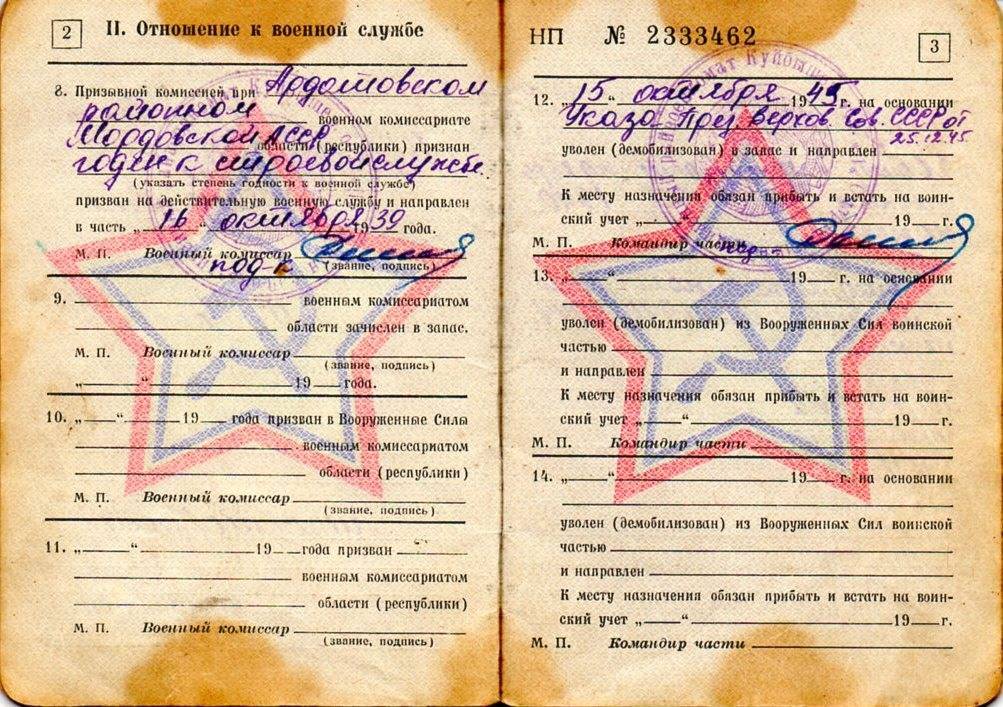 2
II. Отношение к военной службе
8. Призывной комиссией при Ардатовском
районном военном комиссариате
Мордовской АССР области (республики) признан
годен к строевой службе
(указать степень годности к военной службе)
призван на действительную военную службу и направлен
в часть „16“ октября 1939 года.
М. П. Военный комиссар
под-к (звание, подпись)
9. военным комиссариатом
области зачислен в запас.
М. П. Военный комиссар
(звание, подпись)
„ “ 19 года.
10. „ “ 19 года призван в Вооруженные Силы
военным комиссариатом
области (республики)
М. П. Военный комиссар
(звание, подпись)
11. „ “ 19 года призван
военным комиссариатом
области (республики)
М. П. Военный комиссар
(звание, подпись)
НП № 2333462
3
12. „15“ октября 1945 г. на основании
Указа През. Верхов Сов. СССР от
25.12.45
уволен (демобилизован) в запас и направлен
К месту назначения обязан прибыть и встать на воин-
ский учет „ “ 19 г.
М. П. Командир части
13. „ “ 19 г. на основании
уволен (демобилизован) из Вооруженных Сил воинской
частью
и направлен
К месту назначения обязан прибыть и встать на воин-
ский учет „ “ 19 г.
М. П. Командир части
14. „ “ 19 г. на основании
уволен (демобилизован) из Вооруженных Сил воинской
частью
и направлен
К месту назначения обязан прибыть и встать на воин-
ский учет „ “ 19 г.
М. П. Командир части